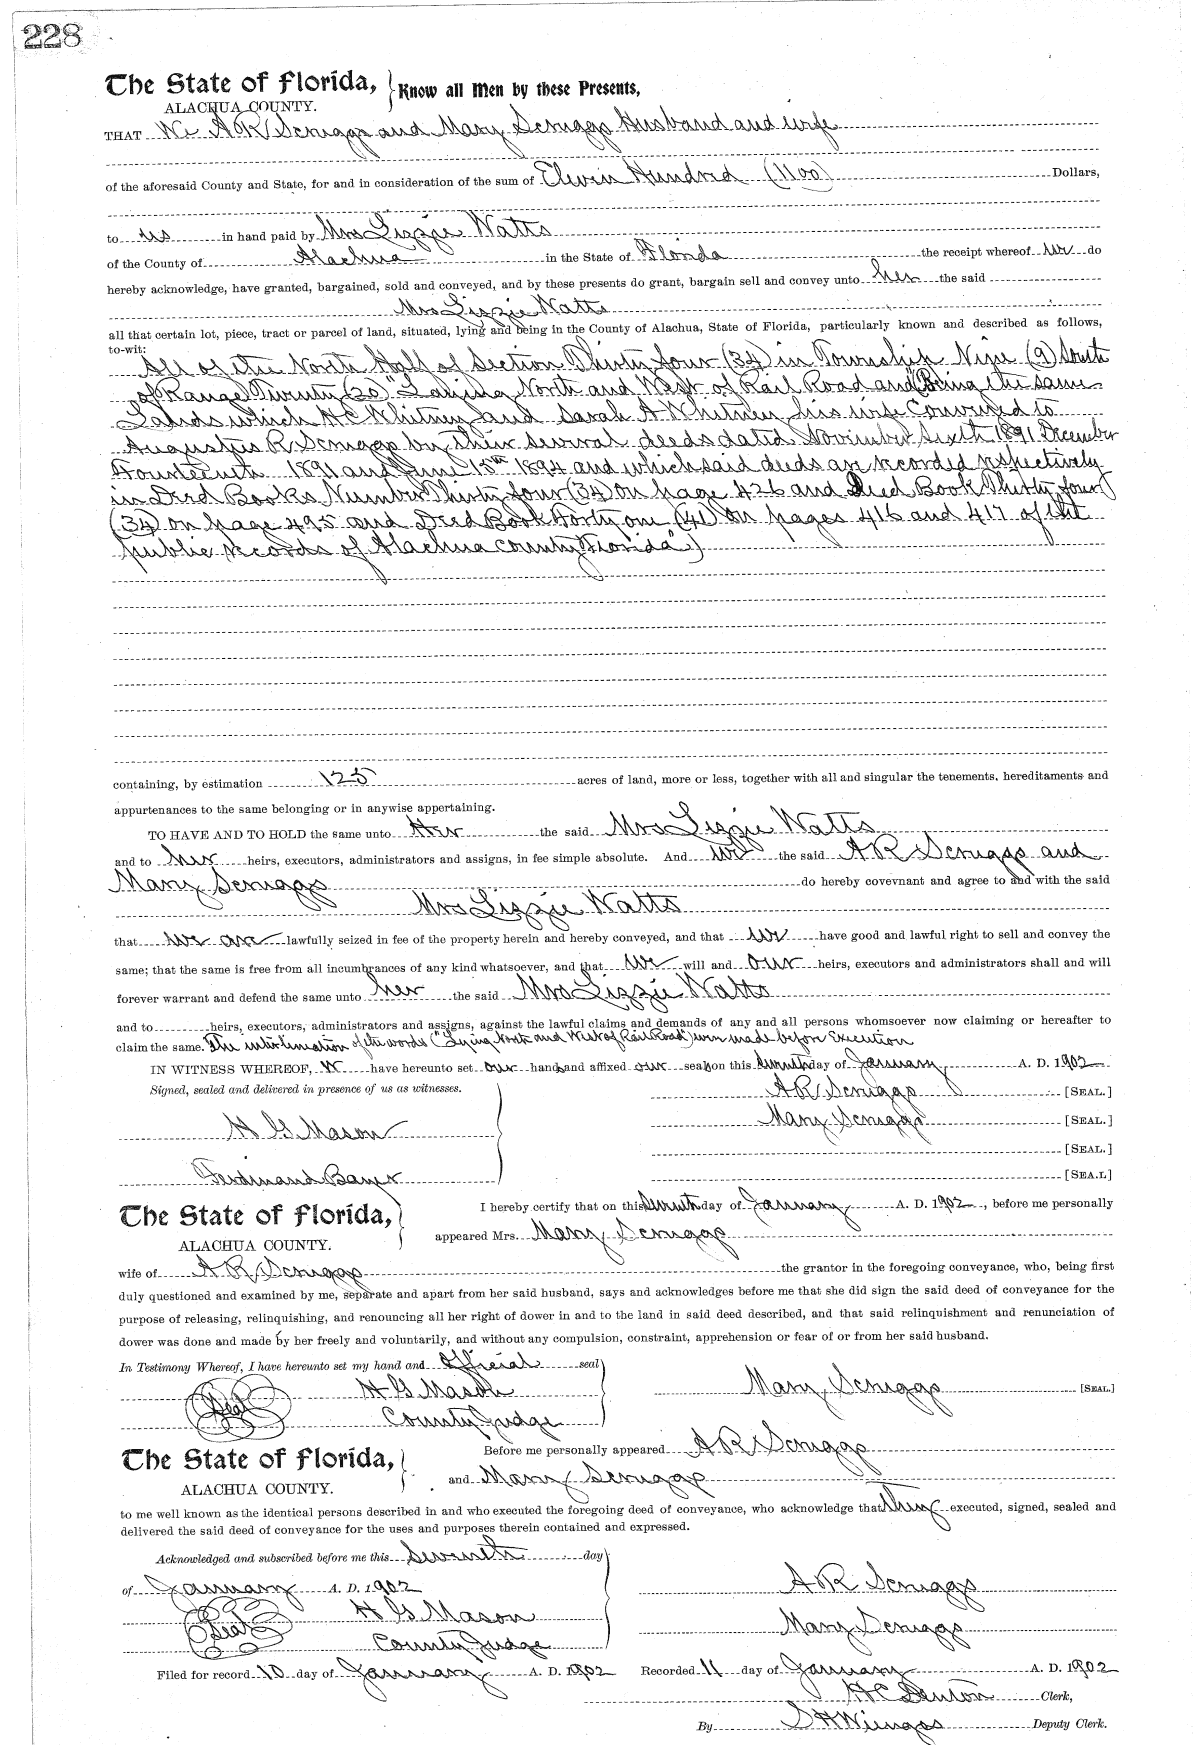 228
The State of Florida, Know all Men by these Presents,
ALACHUA COUNTY.
THAT We A R Scruggs and Mary Scruggs Husband and wife
of the aforesaid County and State, for and in consideration of the sum of Eleven Hundred (1100) Dollars,
to us in hand paid by Mrs Lizzie Watts
of the County of Alachua in the State of Florida the receipt whereof we do
hereby acknowledge, have granted, bargained, sold and conveyed, and by these presents do grant, bargain sell and convey unto her the said
Mrs Lizzie Watts
all that certain lot, piece, tract or parcel of land, situated, lying and being in the County of Alachua, State of Florida, particularly known and described as follows,
to-wit:
All of the North Half of Section Thirty four (34) in Township Nine (9) South
of Range Twenty (20) "Laying North and West of Rail Road and" (Being the same
Lands which H C Whitney and Sarah A Whitney his wife Conveyed to
Augustus R. Scruggs by their several deeds dated November Sixth 1891 December
Fourteenth 1891 and June 15th 1894 and which said deeds are recorded respectively
in Deed Books Number Thirty four (34) on page 426 and Deed Book Thirty four
(34) on page 495 and Deed Book Forty one (41) on pages 416 and 417 of the
public records of Alachua County Florida")
containing, by estimation 125 acres of land, more or less, together with all and singular the tenements, hereditaments and
appurtenances to the same belonging or in anywise appertaining.
TO HAVE AND TO HOLD the same unto Her the said Mrs Lizzie Watts
and to her heirs, executors, administrators and assigns, in fee simple absolute. And we the said A R Scruggs and
Mary Scruggs do hereby covevnant and agree to and with the said
Mrs Lizzie Watts
that we are lawfully seized in fee of the property herein and hereby conveyed, and that we have good and lawful right to sell and convey the
same; that the same is free from all incumbrances of any kind whatsoever, and that we will and our heirs, executors and administrators shall and will
forever warrant and defend the same unto her the said Mrs Lizzie Watts
and to heirs, executors, administrators and assigns, against the lawful claims and demands of any and all persons whomsoever now claiming or hereafter to
claim the same. The interlineation of the words ("Lying North and West of Rail Road") were made before Execution
IN WITNESS WHEREOF, We have hereunto set our hands and affixed our seals on this Seventh day of January A. D. 1902
Signed, sealed and delivered in presence of us as witnesses. A R Scruggs [SEAL.]
H G Mason Mary Scruggs [SEAL.]
[SEAL.]
Ferdinand Bayer [SEAL.]
The State of Florida, I hereby certify that on this Seventh day of January A. D. 1902, before me personally
ALACHUA COUNTY. appeared Mrs. Mary Scruggs
wife of A R Scruggs the grantor in the foregoing conveyance, who, being first
duly questioned and examined by me, separate and apart from her said husband, says and acknowledges before me that she did sign the said deed of conveyance for the
purpose of releasing, relinquishing, and renouncing all her right of dower in and to the land in said deed described, and that said relinquishment and renunciation of
dower was done and made by her freely and voluntarily, and without any compulsion, constraint, apprehension or fear of or from her said husband.
In Testimony Whereof, I have hereunto set my hand and official seal
Seal H G Mason Mary Scruggs [SEAL.]
County Judge
The State of Florida, Before me personally appeared A R Scruggs
ALACHUA COUNTY. and Mary Scruggs
to me well known as the identical persons described in and who executed the foregoing deed of conveyance, who acknowledge that they executed, signed, sealed and
delivered the said deed of conveyance for the uses and purposes therein contained and expressed.
Acknowledged and subscribed before me this Seventh day
of January A. D. 1902 A R Scruggs
Seal H G Mason Mary Scruggs
County Judge
Filed for record 10 day of January A. D. 1902 Recorded 11 day of January A. D. 1902
H C Denton Clerk,
By S H Wienges Deputy Clerk.